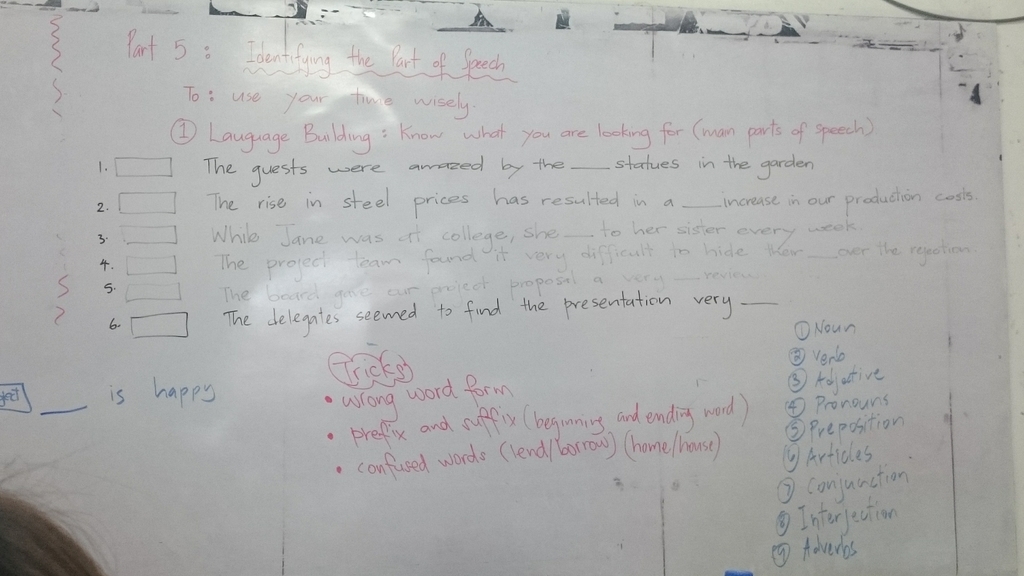 Part 5 : Identifying the Part of Speech
To : use your time wisely.
① Lauguage Building : Know what you are looking for (main parts of speech)
1. The guests were amazed by the ___ statues in the garden
2. The rise in steel prices has resulted in a ___ increase in our production costs.
3. While Jane was at college, she ___ to her sister every week.
4. The project team found it very difficult to hide their ___ over the rejection.
5. The board gave our project proposal a very ___ review
6. The delegates seemed to find the presentation very ___
___ is happy
Tricks
• wrong word form
• prefix and suffix (beginning and ending word)
• confused words (lend/borrow) (home/house)
① Noun
② Verb
③ Adjective
④ Pronouns
⑤ Preposition
⑥ Articles
⑦ Conjunction
⑧ Interjection
⑨ Adverbs